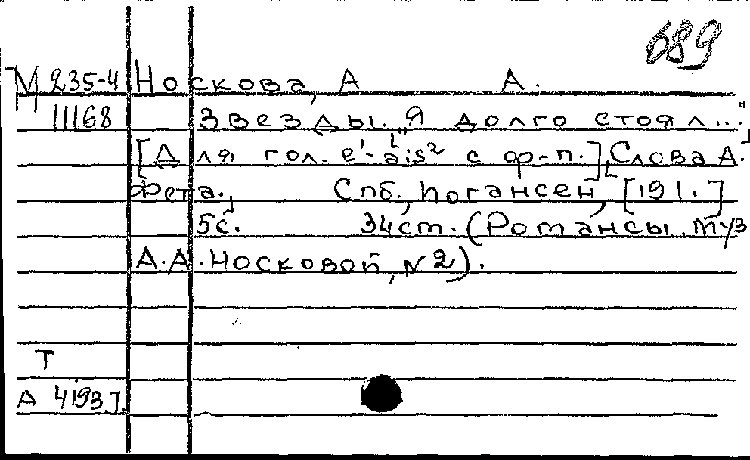 689
М 235-4 Носкова, А А.
11168 Звезды. „Я долго стоял..."
[Для гол. e¹-ais² с ф-п.] [Слова А.
Фета.] Спб., Иогансен, [191.]
5с. 34см. (Романсы. Муз
А.А. Носковой, №2).
Т
А 4193